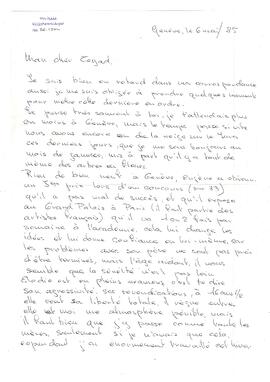 Genève, le 6 mai / 85
Mon cher
Je suis bien en retard dans ma correspondance
aussi je me suis obligée à prendre quelques moments
pour mettre cette dernière en ordre.
Je pense très souvent à toi, je t'attendais plus
ou moins à Genève, mais le temps passe si vite
nous avons encore eu de la neige sur le Jura
ces derniers jours, que je me sens toujours au
mois de janvier, mis à part qu'il y a tout de
même des arbres en fleurs.
Rien de bien neuf à Genève, Eugène a obtenu
un 3me prix lors d'un concours (sur 83)
qu'il a pas mal de succès, et qu'il expose
au Grand Palais à Paris (il fait partie des
artistes français) qu'il va 1 ou 2 fois par
semaine à l'académie, cela lui change les
idées et lui donne confiance en lui-même, car
les problèmes avec son père ne sont pas près
d'être terminés, mais l'âge aidant, il nous
semble que la sérénité n'est pas loin
Elodie est en pleine
son agressivité, ses revendications
elle veut sa liberté totale, il règne entre
elle et moi une atmosphère pénible, mais
il faut bien que j'y passe comme toutes les
mères, seulement si je n'avais que cela,
cependant j'ai énormément travaillé cet hiver